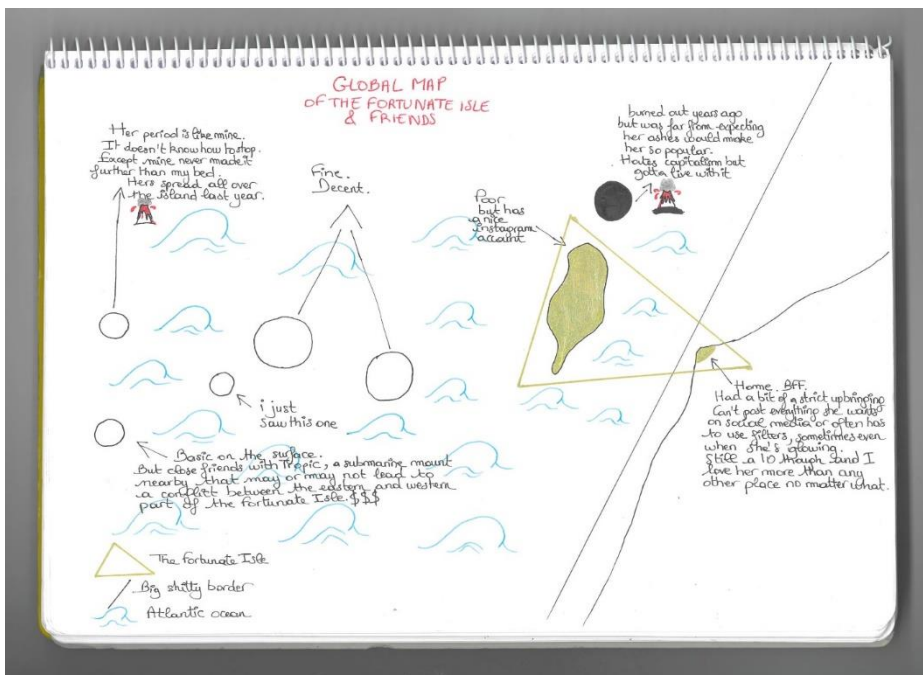 GLOBAL MAP
OF THE FORTUNATE ISLE
& FRIENDS
Her period is like mine.
It doesn't know how to stop.
Except mine never made it
further than my bed.
Hers spread all over
the island last year.
Fine.
Decent.
Poor
but has
a nice
instagram
account
burned out years ago
but was far from expecting
her ashes would make
her so popular.
Hates capitalism but
gotta live with it
i just
saw this one
Basic on the surface.
But close friends with Tropic, a submarine mount
nearby that may or may not lead to
a conflict between the eastern and western
part of the Fortunate Isle. $$$
Home. BFF.
Had a bit of a strict upbringing
Can't post everything she wants
on social media or often has
to use filters, sometimes even
when she's glowing.
Still a 10 though and I
love her more than any
other place no matter what.
The Fortunate Isle
Big shitty border
Atlantic ocean